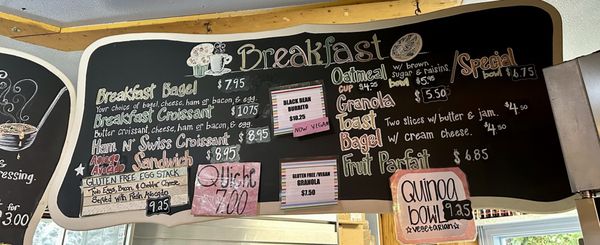 Breakfast
Breakfast Bagel $7.95
Your choice of bagel, cheese, ham or bacon, & egg
Breakfast Croissant $10.75
Butter croissant, cheese, ham or bacon, & egg
Ham N' Swiss Croissant $8.95
Asiago Avocado Sandwich $8.95
GLUTEN FREE EGG STACK
Two Eggs, Bacon, & Cheddar Cheese
Served with Fresh Avocado
9.25
Quiche
7.00
BLACK BEAN
BURRITO
$10.25
NOW VEGAN
GLUTEN FREE/VEGAN
GRANOLA
$7.50
Oatmeal w/ brown sugar & raisins
cup $4.75 bowl $5.95
/Special bowl $6.75
Granola $5.50
Toast Two slices w/ butter & jam. $4.50
Bagel w/ cream cheese. $4.50
Fruit Parfait $6.85
Quinoa
Bowl 9.25
☆VEGETARIAN☆
ressing.
3.00